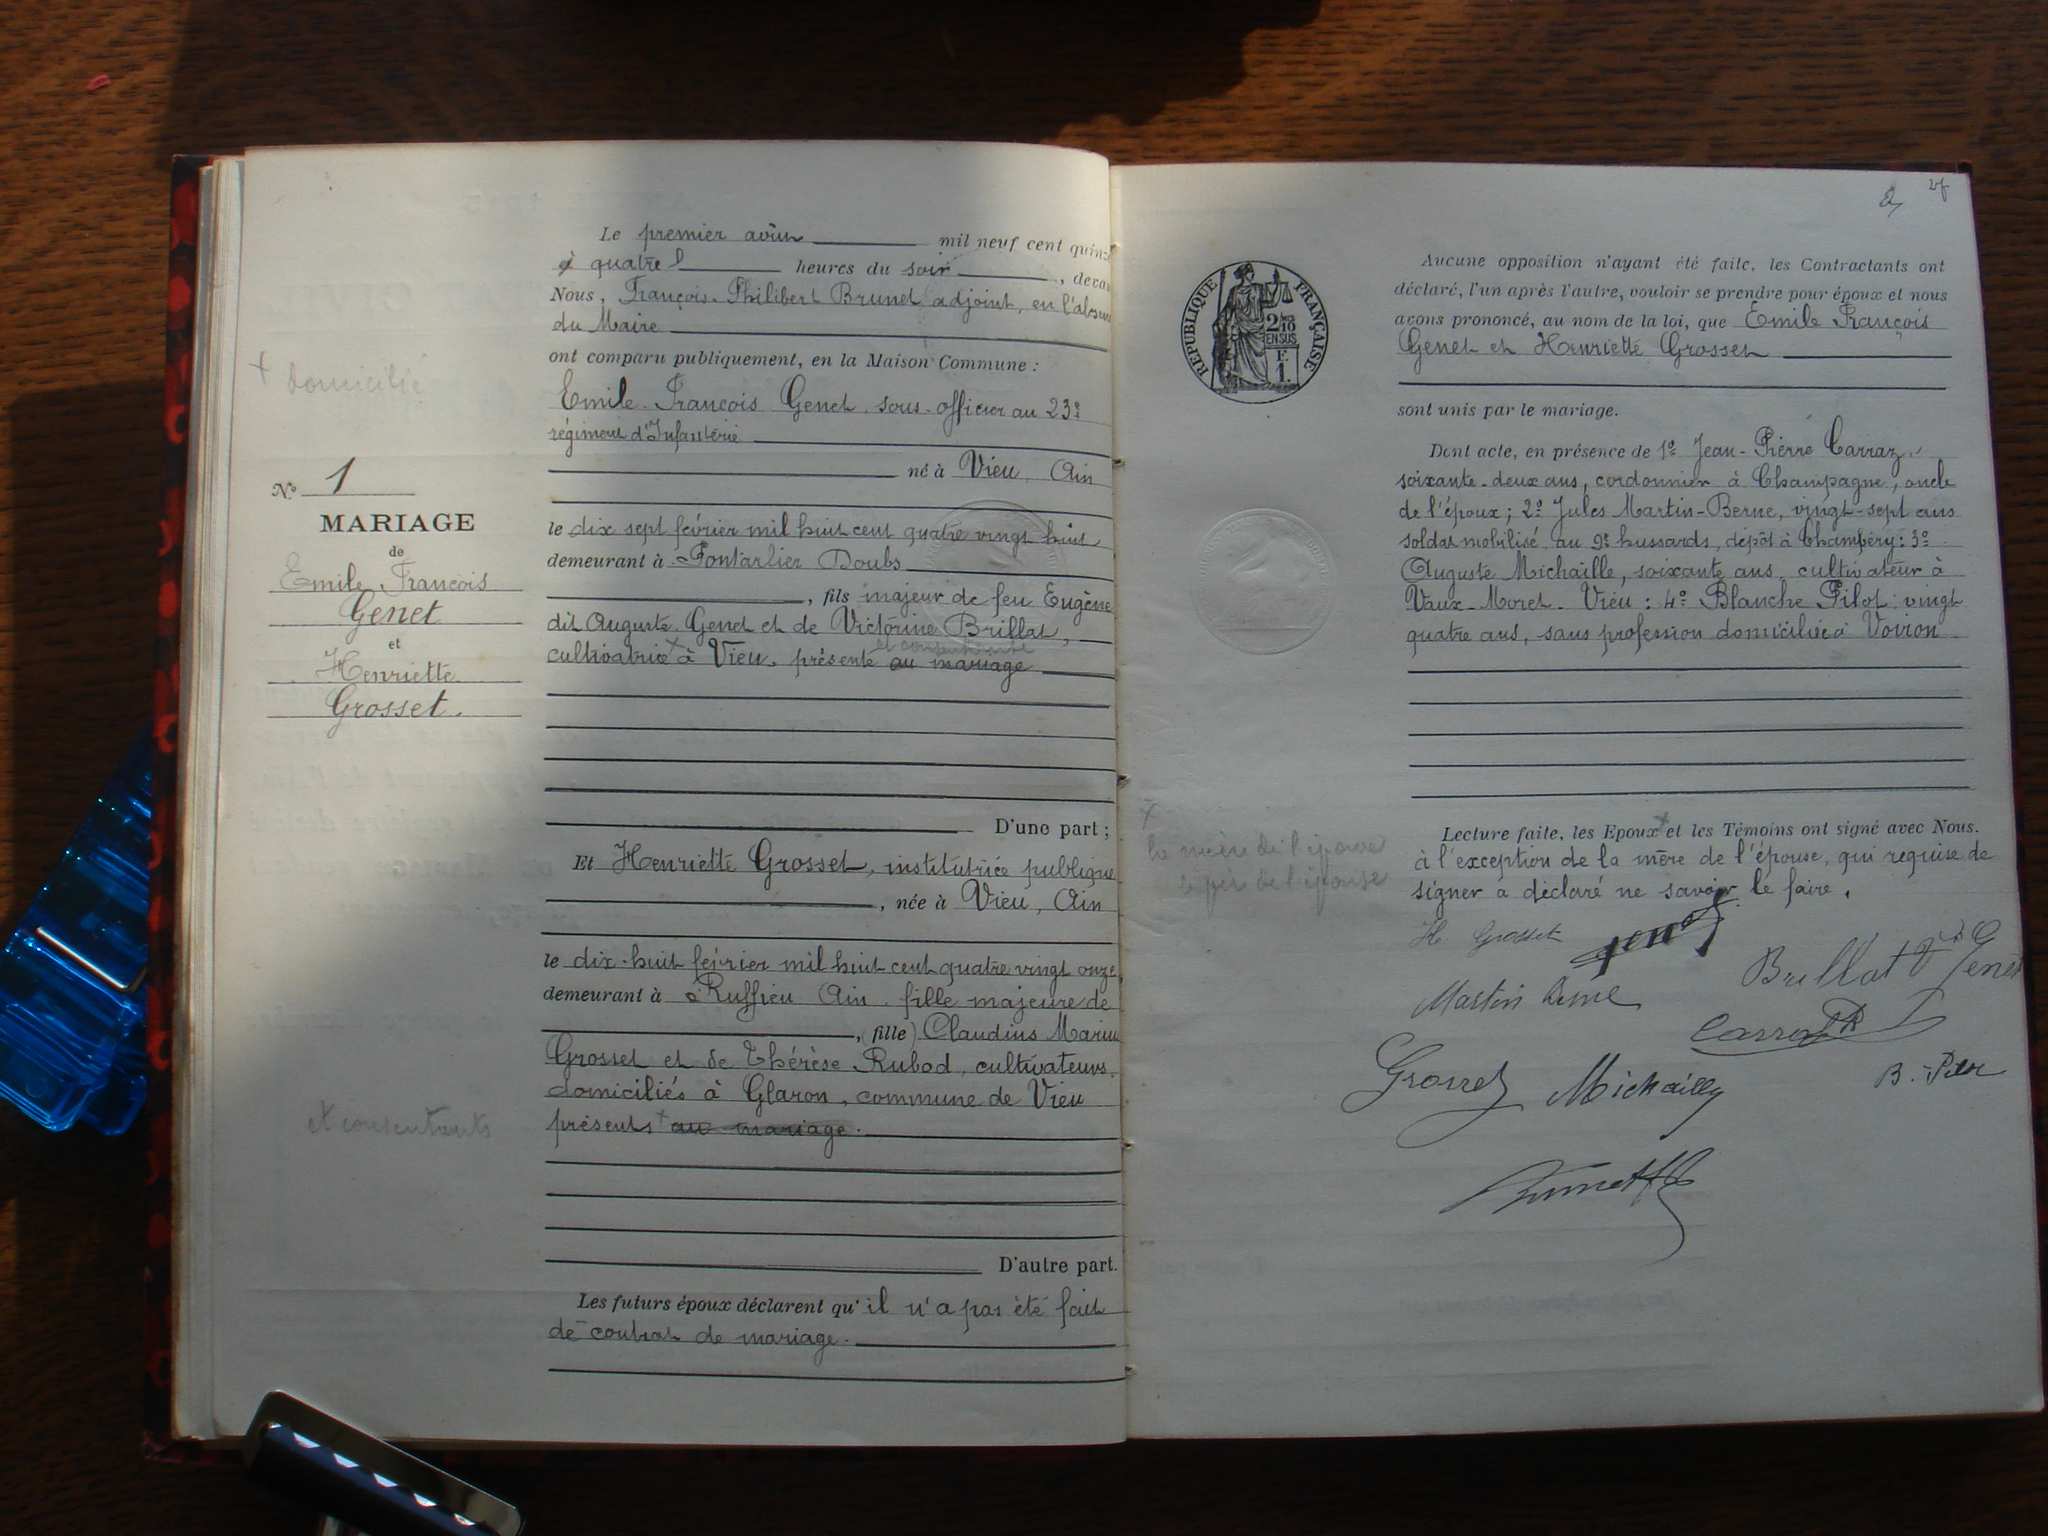 Le premier août mil neuf cent quinz
à quatre heures du soir, devan
Nous, François-Philibert Brunet adjoint, en l'absen
du Maire
ont comparu publiquement, en la Maison Commune :
+ domicilié
Emile François Genet sous-officier au 23e
régiment d'Infanterie
né à Vieu, Ain
le dix sept février mil huit cent quatre vingt huit
demeurant à Pontarlier Doubs
, fils majeur de feu Eugène
dit Auguste Genet et de Victorine Brillat,
et consentante
cultivatrice + à Vieu, présente au mariage
No 1
MARIAGE
de
Emile François
Genet
et
Henriette
Grosset.
D'une part ;
Et Henriette Grosset, institutrice publique
, née à Vieu, Ain
le dix-huit février mil huit cent quatre vingt onze,
demeurant à Ruffieu Ain. fille majeure de
, (fille) Claudius Marin
Grosset et de Thérèse Rubod, cultivateurs,
domiciliés à Glaron, commune de Vieu
présents + au mariage.
et consentants
D'autre part.
Les futurs époux déclarent qu'il n'a pas été fait
de contrat de mariage.
2
REPUBLIQUE FRANÇAISE
2/10
EN SUS
F.
1.
Aucune opposition n'ayant été faite, les Contractants ont
déclaré, l'un après l'autre, vouloir se prendre pour époux et nous
avons prononcé, au nom de la loi, que Emile François
Genet et Henriette Grosset
sont unis par le mariage.
Dont acte, en présence de 1o Jean-Pierre Carraz,
soixante-deux ans, cordonnier à Champagne, oncle
de l'époux; 2o Jules Martin-Berne, vingt-sept ans
soldat mobilisé au 9e hussards, dépôt à Chambéry: 3o
Auguste Michaille, soixante ans, cultivateur à
Vaux-Moret-Vieu : 4o Blanche Pilot vingt
quatre ans, sans profession domiciliée à Voiron
Lecture faite, les Epoux + et les Témoins ont signé avec Nous.
à l'exception de la mère de l'épouse, qui requise de
signer a déclaré ne savoir le faire.
+
la mère de l'époux
le père de l'épouse
H. Grosset Genet
Brillat Ve Genet
Martin Berne
Carraz
Grosset Michailley
B. Pilot
Brunet